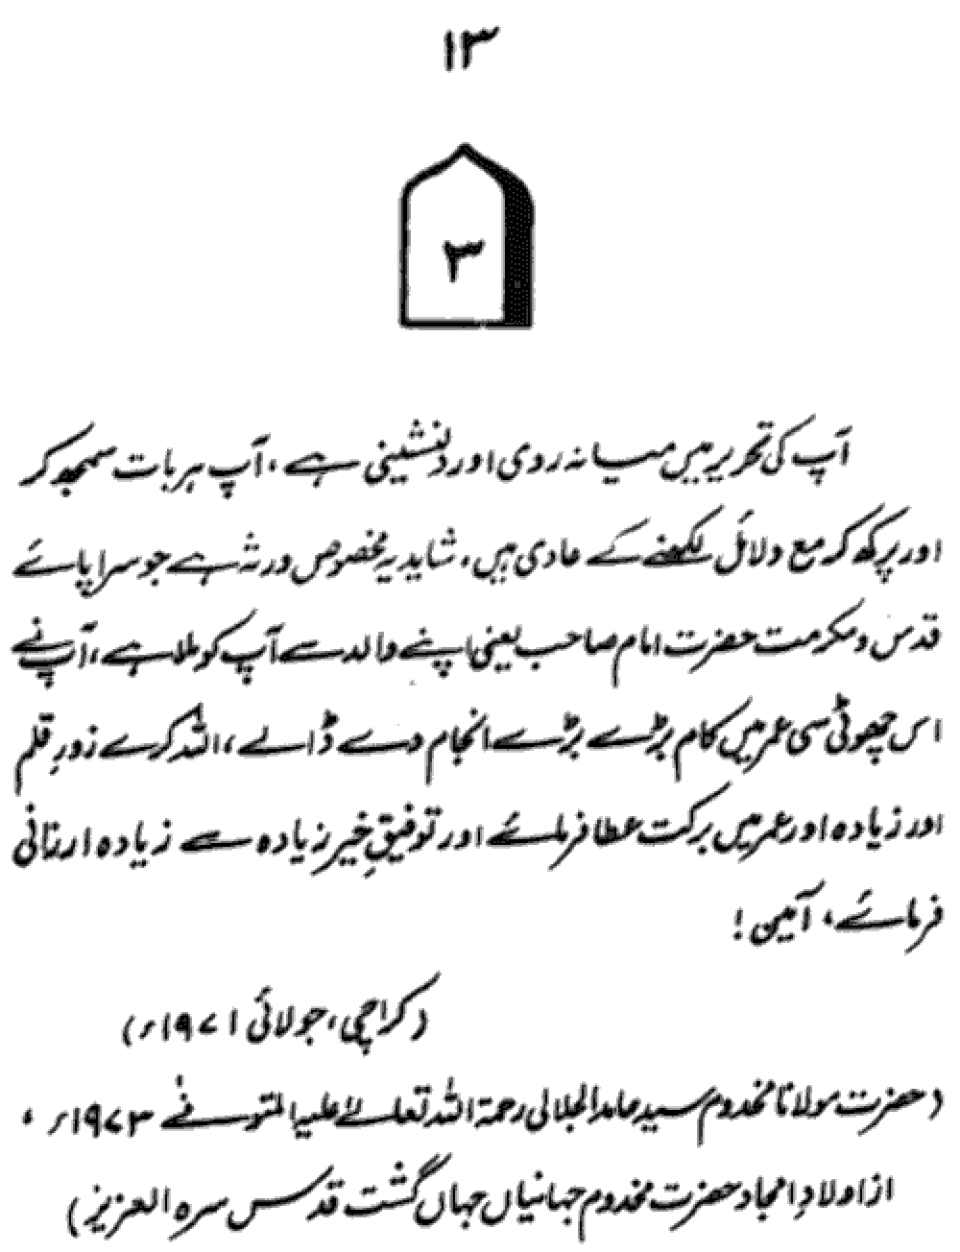 ۱۳
۳
آپ کی تحریر میں میانہ روی اور دلنشینی ہے، آپ ہر بات سمجھ کر
اور پرکھ کر مع دلائل لکھنے کے عادی ہیں، شاید یہ مخصوص ورثہ ہے جو سراپائے
قدس و مکرمت حضرت امام صاحب یعنی اپنے والد سے آپ کو ملا ہے، آپ نے
اس چھوٹی سی عمر میں کام بڑے بڑے انجام دے ڈالے، اللہ کرے زورِ قلم
اور زیادہ اور عمر میں برکت عطا فرمائے اور توفیقِ خیر زیادہ سے زیادہ ارزانی
فرمائے، آمین!
(کراچی، جولائی ۱۹۷۱ء)
(حضرت مولانا مخدوم سید حامد الجلالی رحمۃ اللہ تعالےٰ علیہ المتوفےٰ ۱۹۷۳ء،
از اولادِ امجاد حضرت مخدوم جہانیاں جہاں گشت قدس سرہ العزیز)